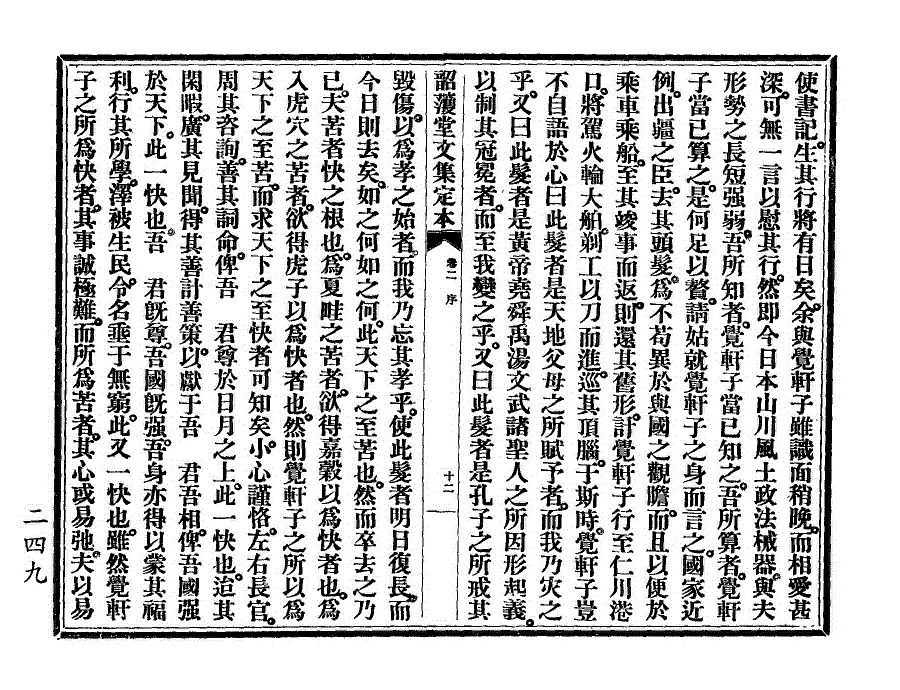 使書記生其行將有日矣余與覺軒子雖識面稍晚而相愛甚
深可無一言以慰其行然即今日本山川風土政法械器與夫
形勢之長短强弱吾所知者覺軒子當已知之吾所算者覺軒
子當已算之是何足以贅請姑就覺軒子之身而言之國家近
例出疆之臣去其頭髮爲不苟異於與國之觀瞻而且以便於
乘車乘船至其竣事而返則還其舊形計覺軒子行至仁川港
口將駕火輪大舶剃工以刀而進巡其頂腦于斯時覺軒子豈
不自語於心曰此髮者是天地父母之所賦予者而我乃灾之
乎又曰此髮者是黃帝堯舜禹湯文武諸聖人之所因形起義
以制其冠冕者而至我變之乎又曰此髮者是孔子之所戒其
韶濩堂文集定本 卷二 序 十二
毀傷以爲孝之始者而我乃忘其孝乎使此髮者明日復長而
今日則去矣如之何如之何此天下之至苦也然而卒去之乃
已夫苦者快之根也爲夏畦之苦者欲得嘉穀以爲快者也
入虎穴之苦者欲得虎子以爲快者也然則覺軒子之所以爲
天下之至苦而求天下之至快者可知矣小心謹恪左右長官
周其咨詢善其詞命俾吾 君尊於日月之上此一快也迨其
閑暇廣其見聞得其善計善策以獻于吾 君吾相俾吾國强
於天下此一快也吾 君旣尊吾國旣强吾身亦得以業其福
利行其所學澤被生民令名垂于無窮此又一快也雖然覺軒
子之所爲快者其事誠極難而所爲苦者其心或易弛夫以易
二四九